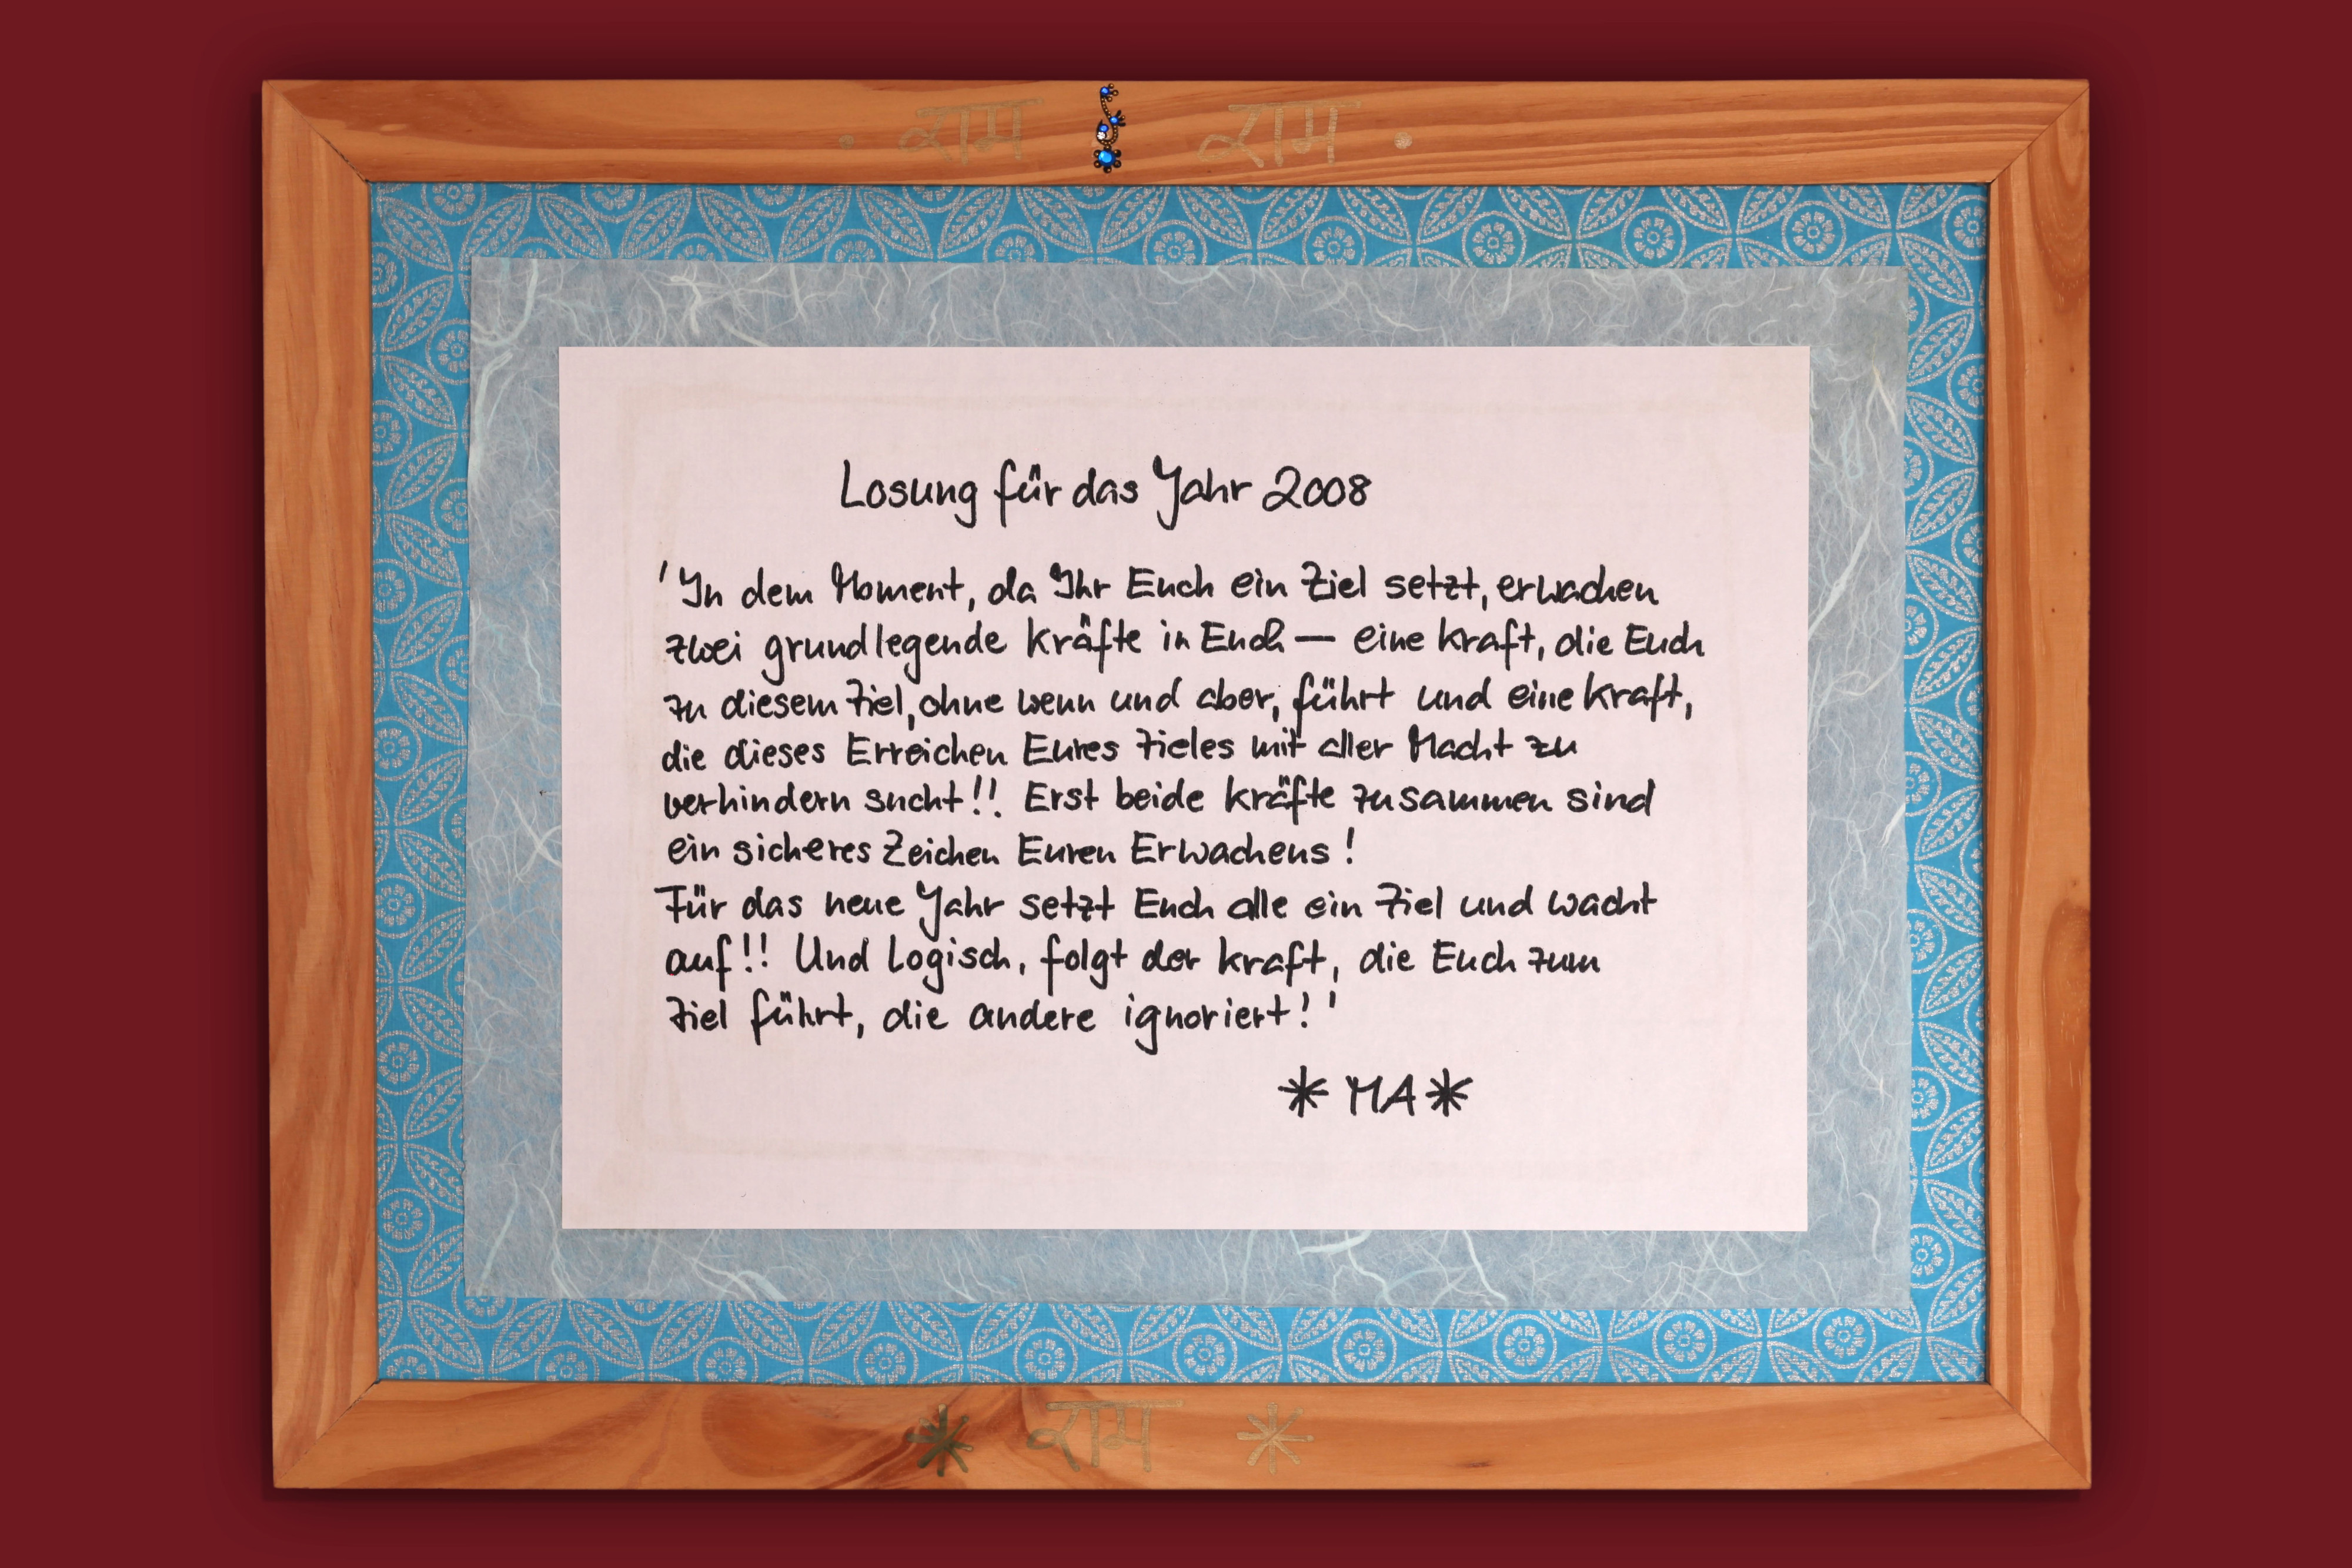 · राम राम ·
Losung für das Jahr 2008
'In dem Moment, da Ihr Euch ein Ziel setzt, erwachen
zwei grundlegende Kräfte in Euch — eine Kraft, die Euch
zu diesem Ziel, ohne wenn und aber, führt und eine Kraft,
die dieses Erreichen Eures Zieles mit aller Macht zu
verhindern sucht!! Erst beide Kräfte zusammen sind
ein sicheres Zeichen Euren Erwachens!
Für das neue Jahr setzt Euch alle ein Ziel und wacht
auf!! Und Logisch, folgt der Kraft, die Euch zum
Ziel führt, die andere ignoriert!'
* MA *
* राम *